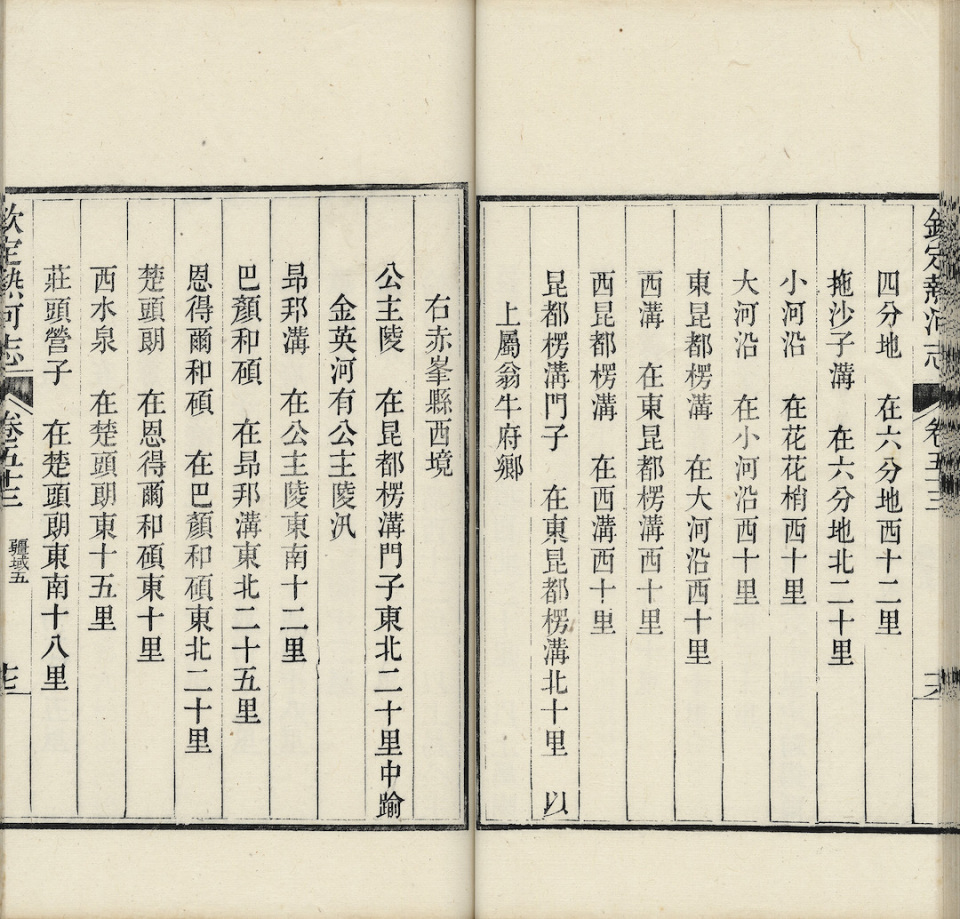 欽定熱河志 卷五十三
四分地 在六分地西十二里
拖沙子溝 在六分地北二十里
小河沿 在花花梢西十里
大河沿 在小河沿西十里
東昆都楞溝 在大河沿西十里
西溝 在東昆都楞溝西十里
西昆都楞溝 在西溝西十里
昆都楞溝門子 在東昆都楞溝北十里 以
上屬翁牛府鄉
右赤峯縣西境
公主陵 在昆都楞溝門子東北二十里中踰
金英河有公主陵汛
昻邦溝 在公主陵東南十二里
巴顏和碩 在昻邦溝東北二十五里
恩得爾和碩 在巴顏和碩東北二十里
楚頭朗 在恩得爾和碩東十里
西水泉 在楚頭朗東十五里
莊頭營子 在楚頭朗東南十八里
欽定熱河志 卷五十三 疆域五 七